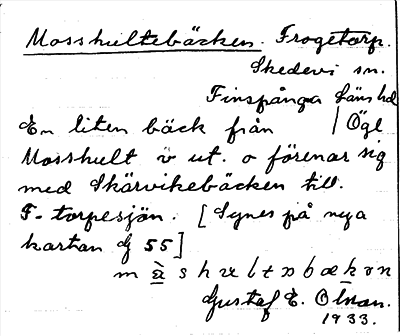 Mosshultebäcken. Frogetorp.
Skedevi sn.
Finspånga läns hd
En liten bäck från / Ögl
Mosshult ö ut. o förenar sig
med Skärvikebäcken till.
F-torpesjön. [Synes på nya
kartan Gf 55]
Gustaf E. Ölnan.
1933.